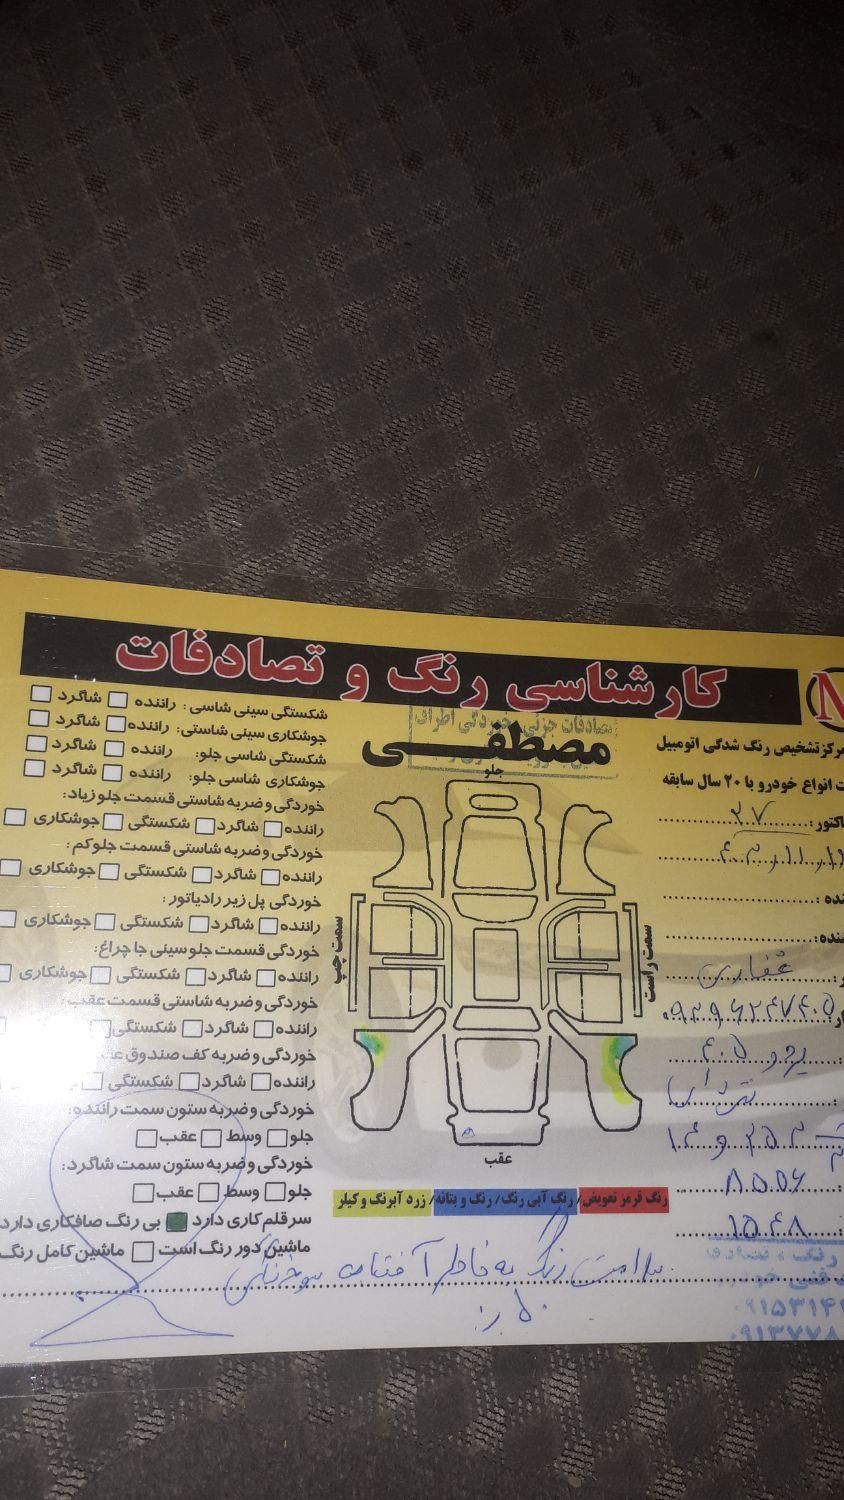 کارشناسی رنگ و تصادفات
N
مصطفی
مرکز تشخیص رنگ شدگی اتومبیل
ت انواع خودرو با ۲۰ سال سابقه
اکتور: ۳۷
نده:
نده:
غفاری
پژو ۴۰۵
۸۵۵۶
۱۵۴۸
شکستگی سینی شاسی: راننده □ شاگرد □
جوشکاری سینی شاستی: راننده □ شاگرد □
شکستگی شاسی جلو: راننده □ شاگرد □
جوشکاری شاسی جلو: راننده □ شاگرد □
خوردگی و ضربه شاستی قسمت جلو زیاد:
راننده □ شاگرد □ شکستگی □ جوشکاری □
خوردگی و ضربه شاستی قسمت جلو کم:
راننده □ شاگرد □ شکستگی □ جوشکاری □
خوردگی پل زیر رادیاتور:
راننده □ شاگرد □ شکستگی □ جوشکاری □
خوردگی قسمت جلو سینی جا چراغ:
راننده □ شاگرد □ شکستگی □ جوشکاری □
خوردگی و ضربه شاستی قسمت عقب:
راننده □ شاگرد □ شکستگی □
خوردگی و ضربه کف صندوق
راننده □ شاگرد □ شکستگی □
خوردگی و ضربه ستون سمت راننده:
جلو □ وسط □ عقب □
خوردگی و ضربه ستون سمت شاگرد:
جلو □ وسط □ عقب □
سرقلم کاری دارد ■ بی رنگ صافکاری دارد
ماشین دور رنگ است □ ماشین کامل رنگ
جلو
سمت چپ
سمت راست
عقب
رنگ قرمز تعویض/ رنگ آبی رنگ/ رنگ و بتانه/ زرد آبرنگ و کیلر
رنگ به خاطر آفتاب سوختگی